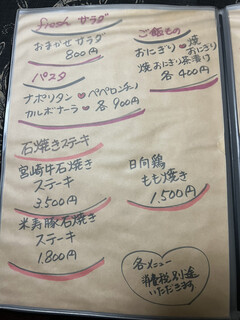 fresh サラダ
おまかせサラダ
800円
パスタ
ナポリタン ペペロンチーノ
カルボナーラ 各900円
石焼きステーキ
宮崎牛石焼き
ステーキ
3,500円
米寿豚石焼き
ステーキ
1,800円
ご飯もの
おにぎり 焼おにぎり
焼おにぎり茶漬け
各400円
日向鶏
もも焼き
1,500円
各メニュー
消費税別途
いただきます